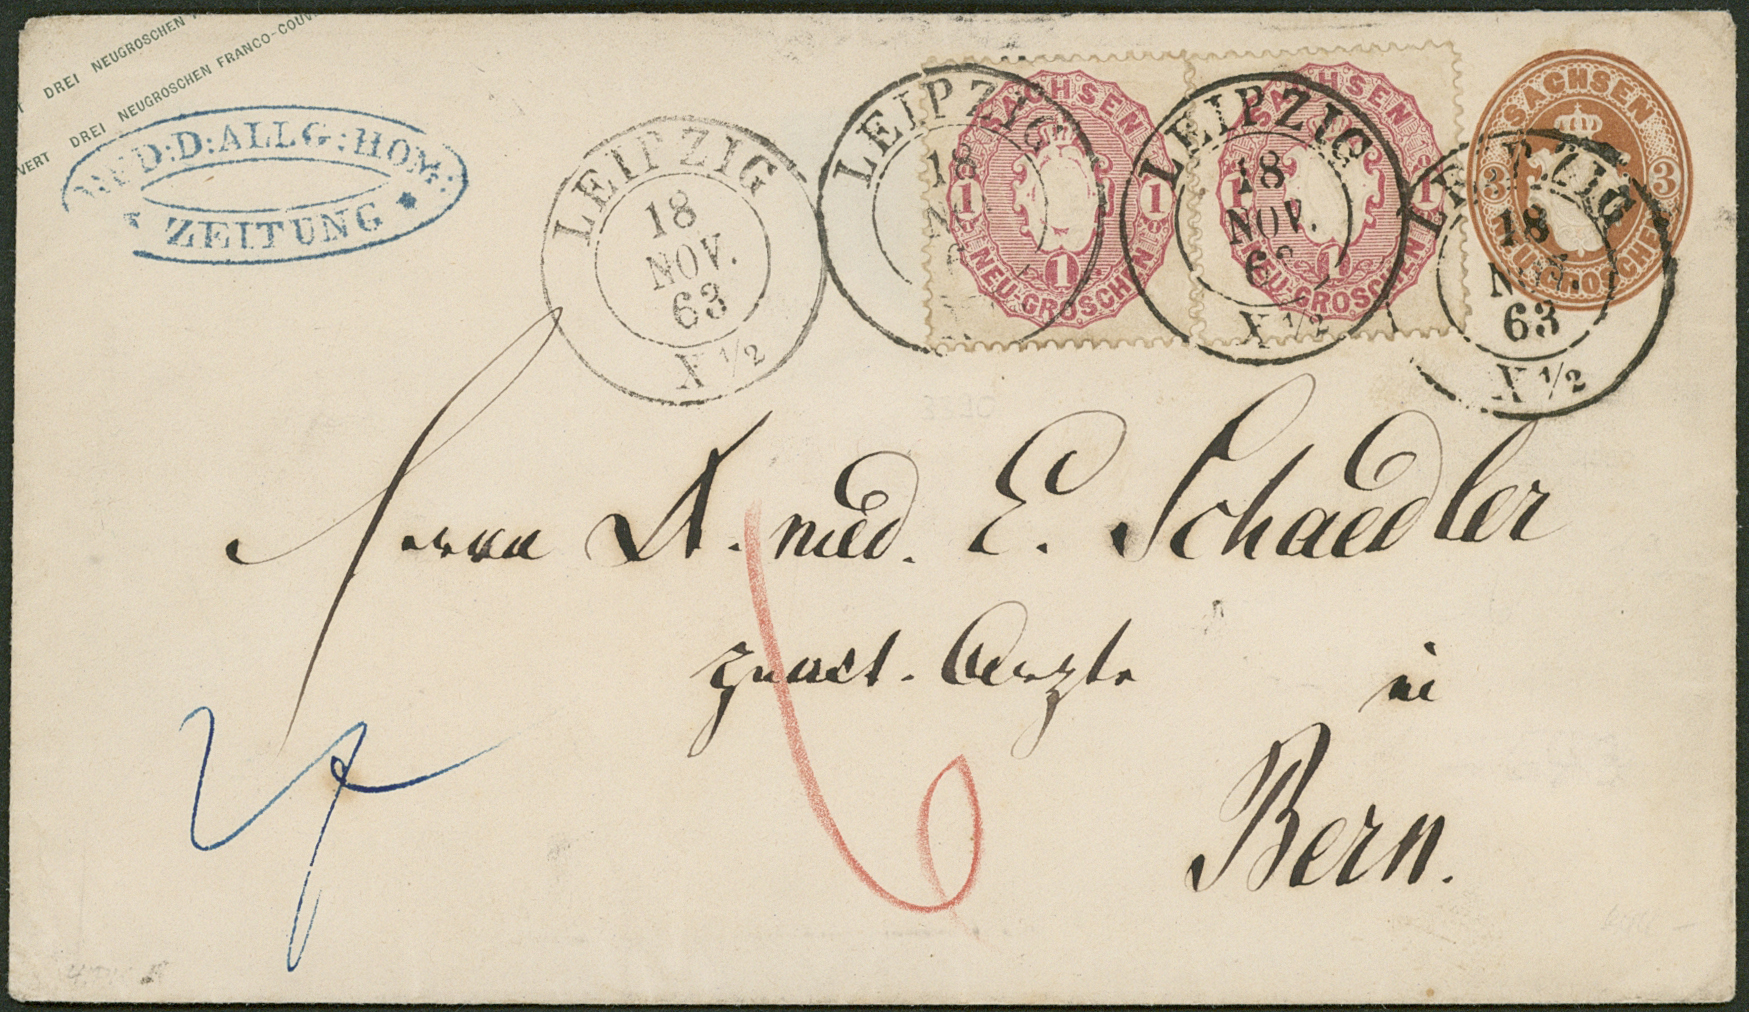 DREI NEUGROSCHEN
VERT DREI NEUGROSCHEN FRANCO-COUV
D:D:ALLG:HOM:
* ZEITUNG *
LEIPZIG
18
NOV.
63
X 1/2
LEIPZIG
18
LEIPZIG
18
NOV.
63
X 1/2
LEIPZIG
18
NOV.
63
X 1/2
SACHSEN
1 1
1
NEU-GROSCHEN
SACHSEN
1 1
1
NEU-GROSCHEN
SACHSEN
3 3
NEUGROSCHEN
Herrn Dr. med. E. Schaedler
pract. Arzte in
Bern.
6